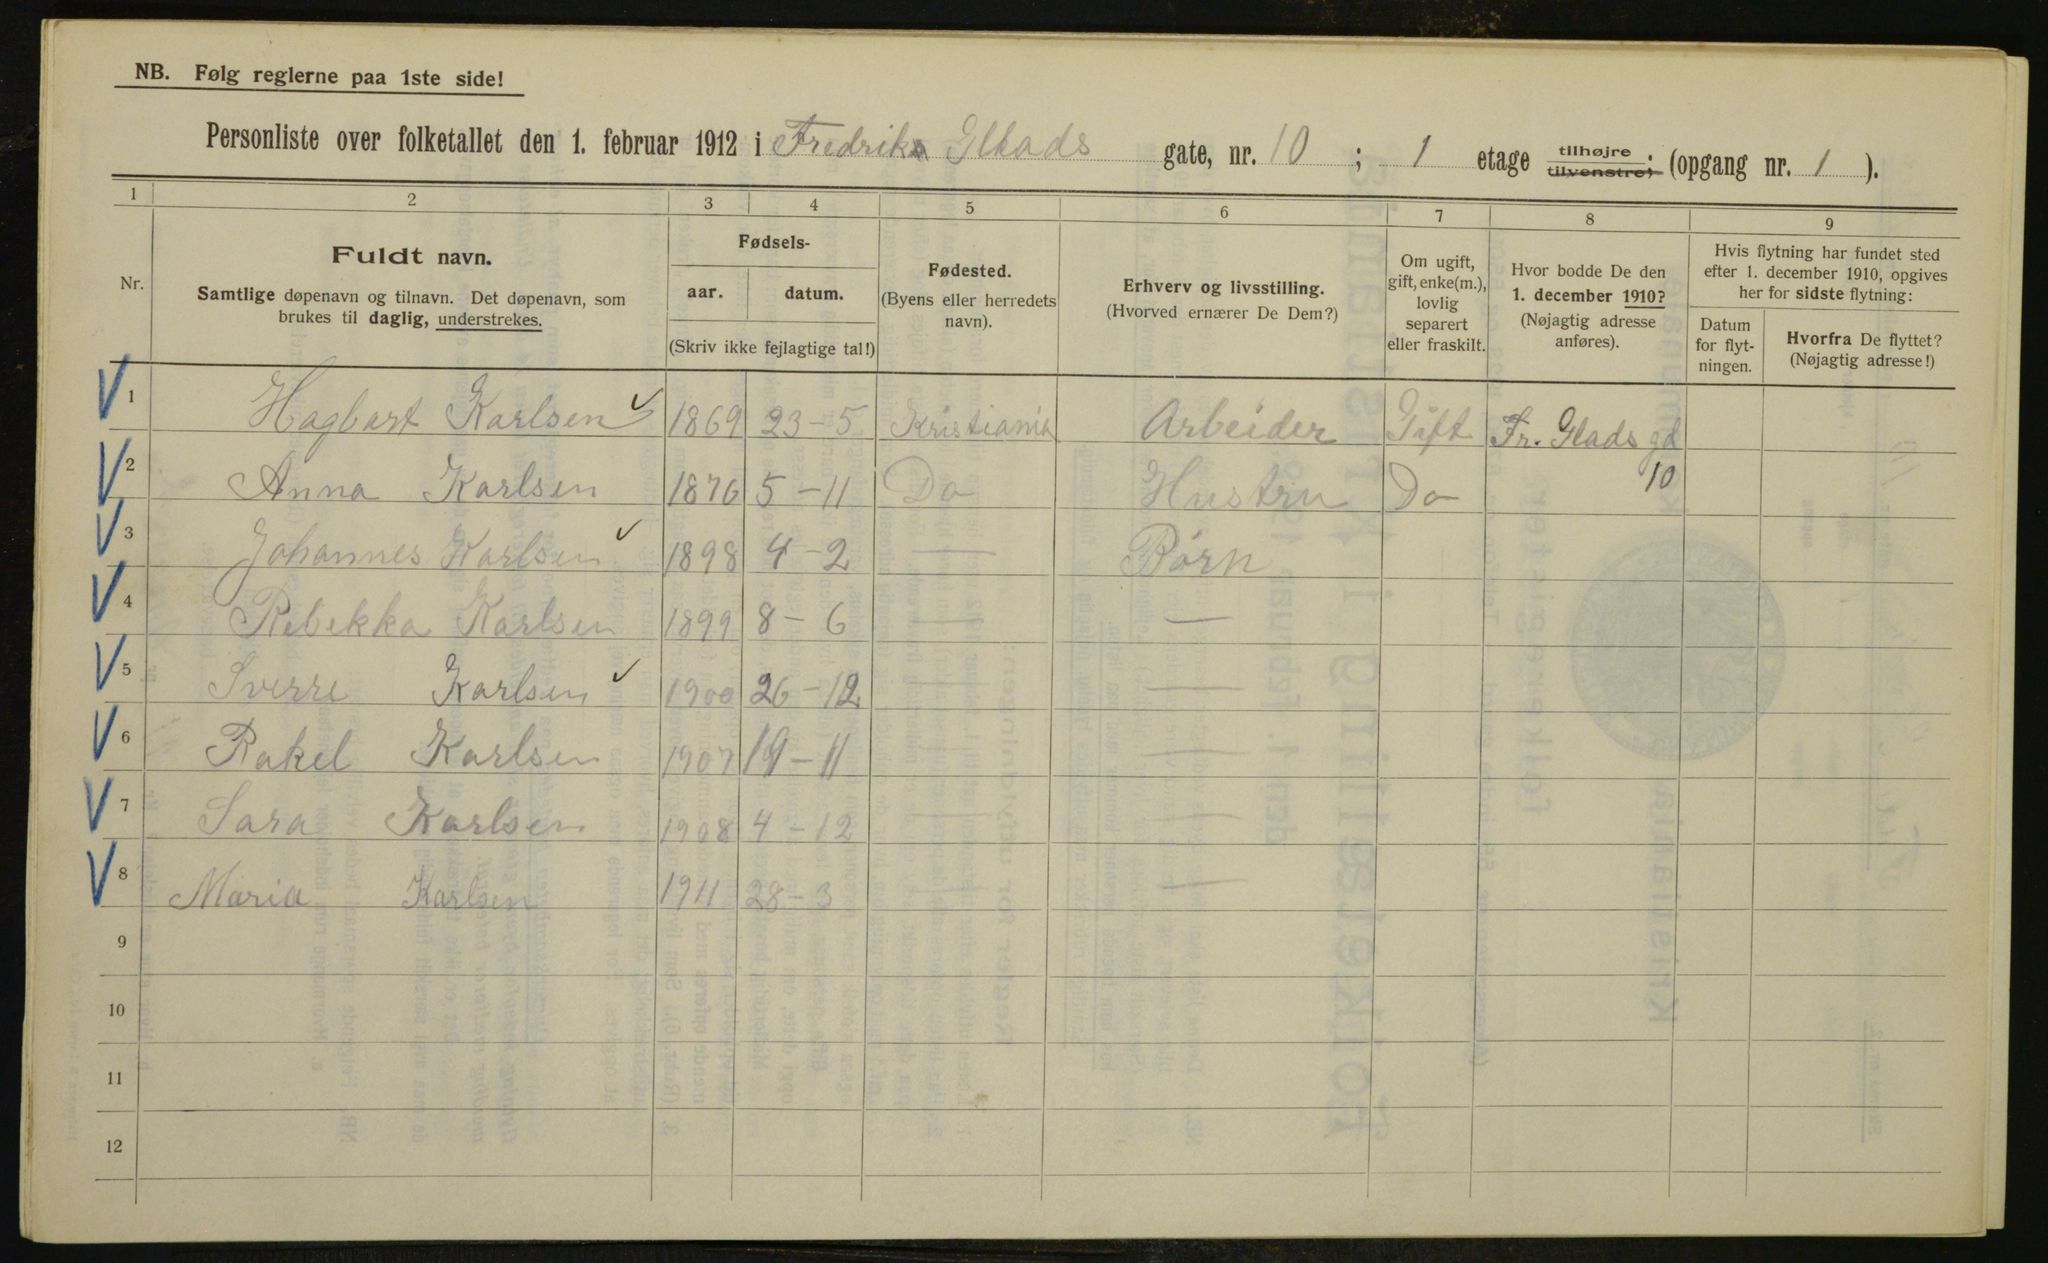 NB. Følg reglerne paa 1ste side!
Personliste over folketallet den 1. februar 1912 i Fredriks Glads gate, nr. 10 ; 1 etage tilhøjre tilvenstre; (opgang nr. 1 ).
1 2 3 4 5 6 7 8 9
Nr.
Fuldt navn.
Samtlige døpenavn og tilnavn. Det døpenavn, som
brukes til daglig, understrekes.
Fødsels-
aar. datum.
(Skriv ikke fejlagtige tal!)
Fødested.
(Byens eller herredets
navn).
Erhverv og livsstilling.
(Hvorved ernærer De Dem?)
Om ugift,
gift, enke(m.),
lovlig
separert
eller fraskilt.
Hvor bodde De den
1. december 1910?
(Nøjagtig adresse
anføres).
Hvis flytning har fundet sted
efter 1. december 1910, opgives
her for sidste flytning:
Datum
for flyt-
ningen.
Hvorfra De flyttet?
(Nøjagtig adresse!)
1 Hagbart Karlsen 1869 23-5 Kristiania Arbeider Gift Fr. Glads gd
2 Anna Karlsen 1876 5-11 Do Hustru Do 10
3 Johannes Karlsen 1898 4-2 — Børn
4 Rebekka Karlsen 1899 8-6 — —
5 Sverre Karlsen 1900 26-12 — —
6 Rakel Karlsen 1907 19-11 — —
7 Sara Karlsen 1908 4-12 — —
8 Maria Karlsen 1911 28-3 — —
9
10
11
12